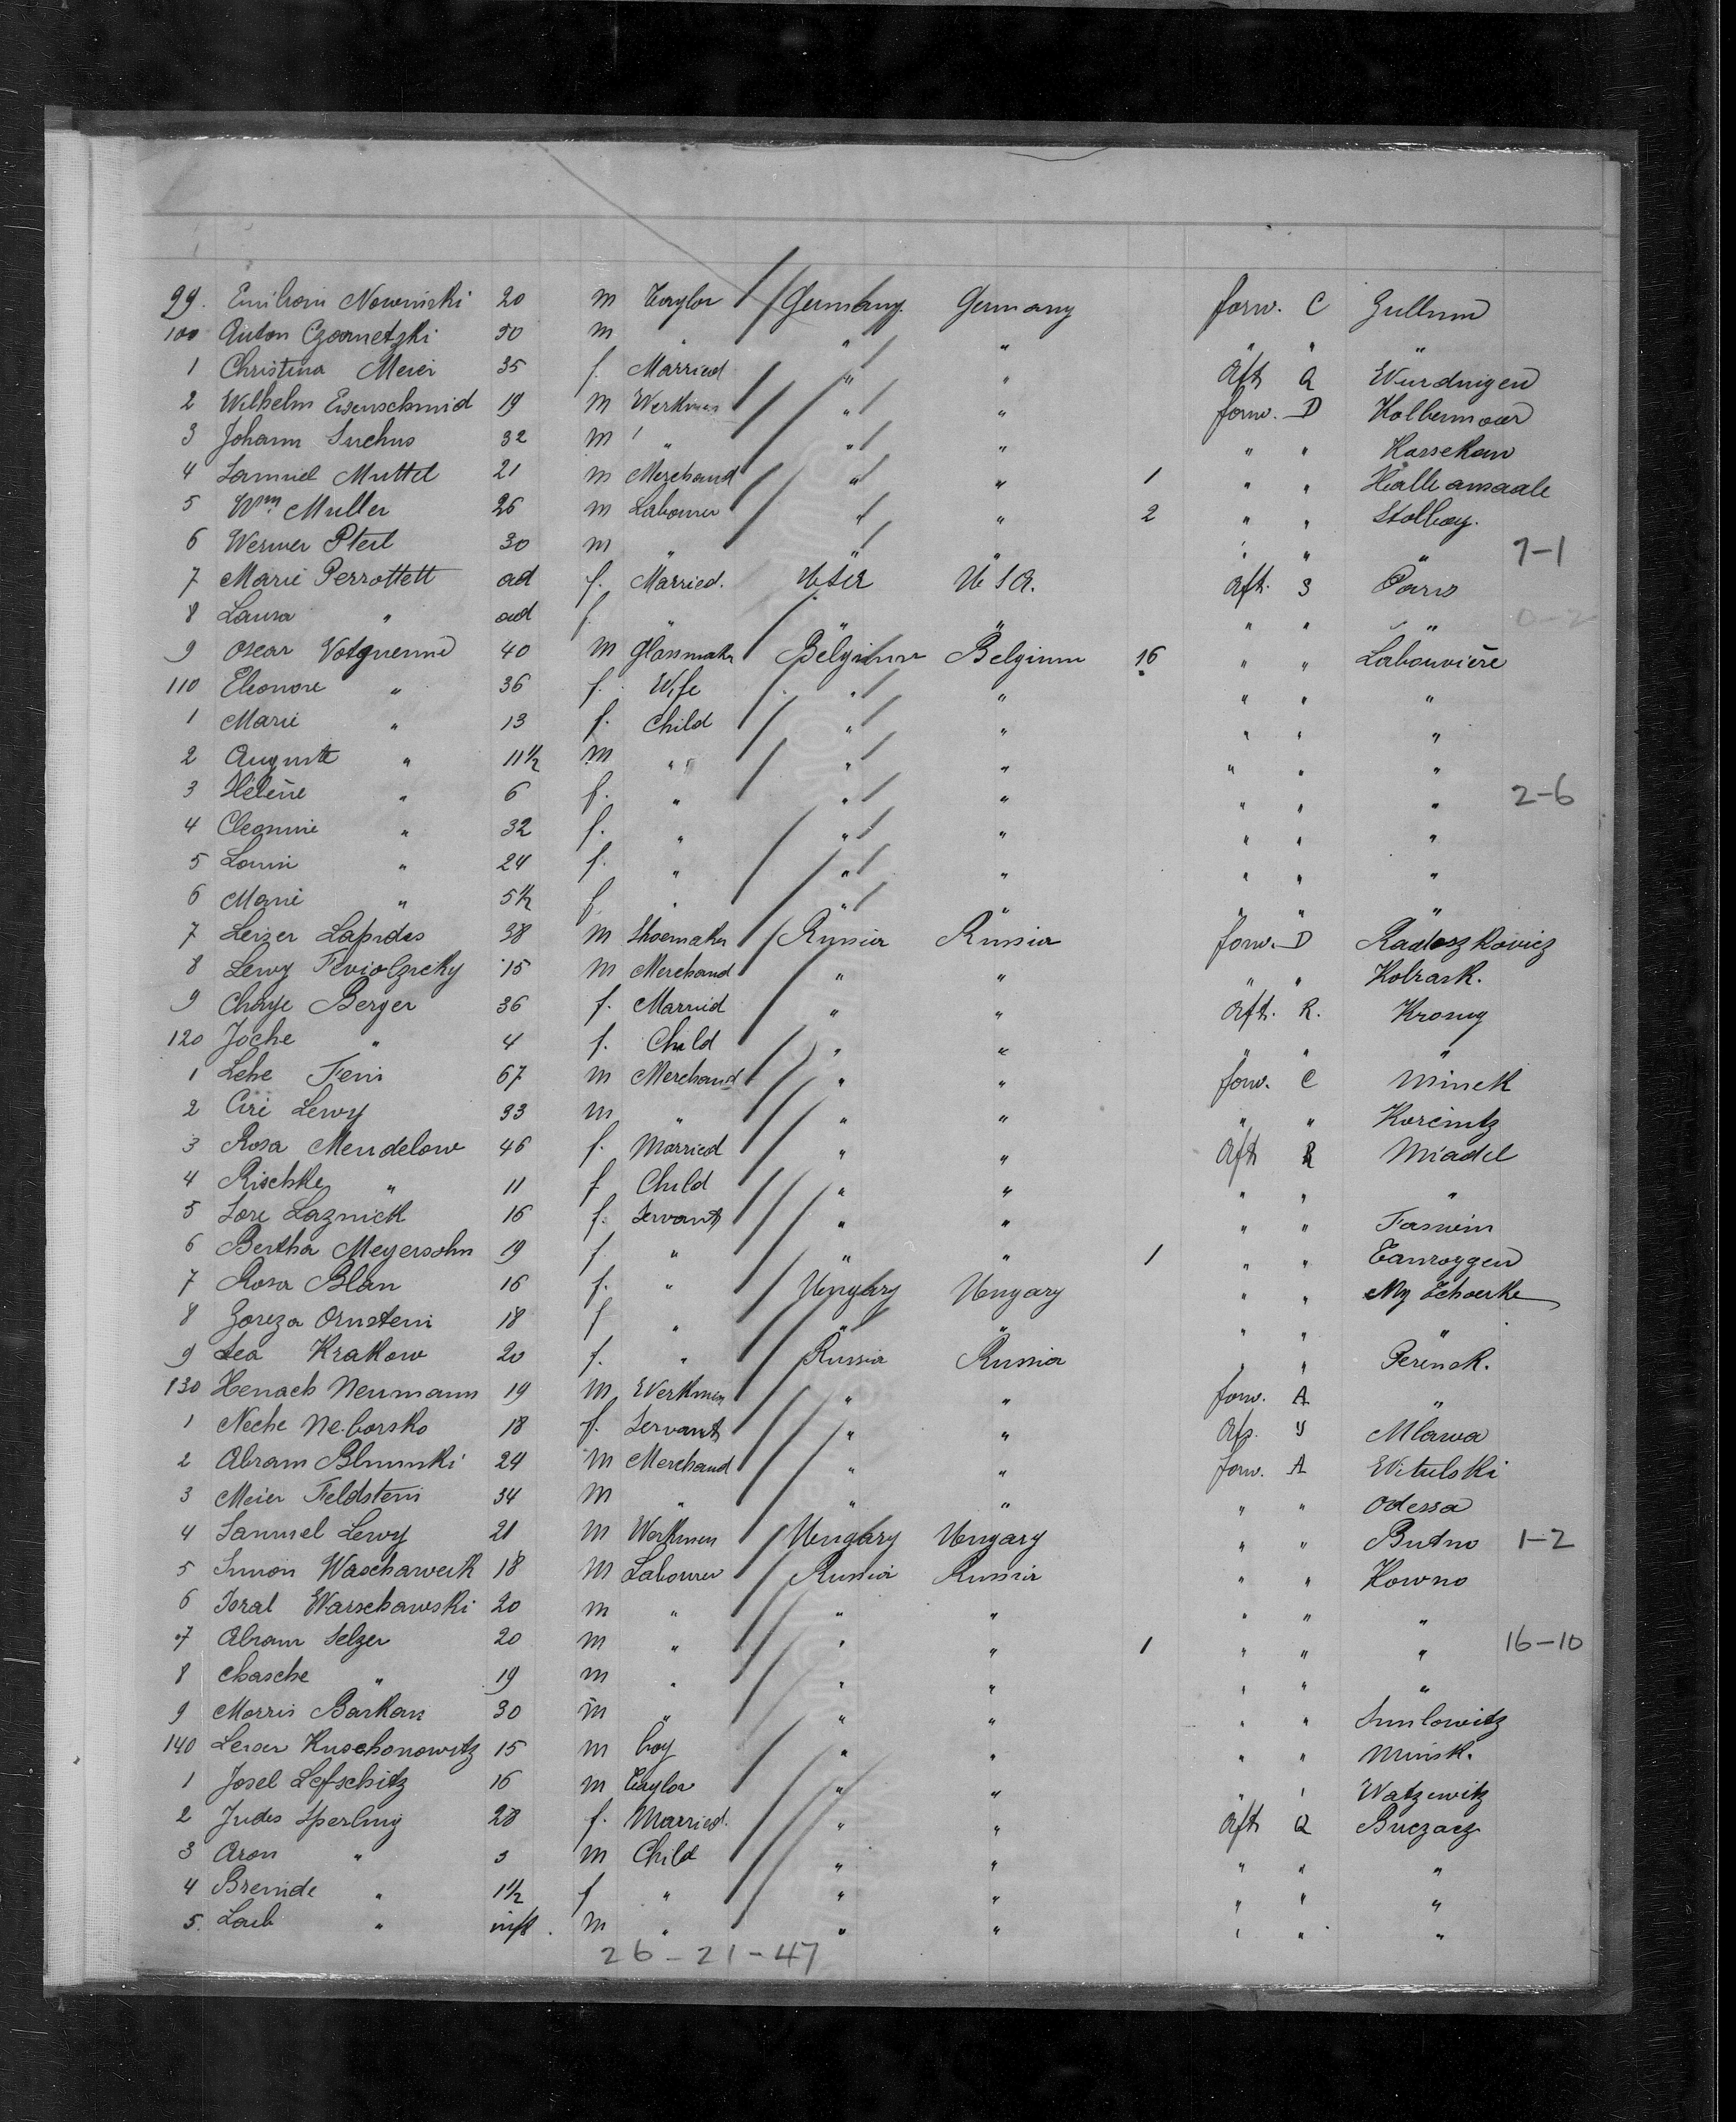 99. Emilroni Nowinski 20 m Taylor Germany. Germany forw. C Gullnno
100 Anton Czarnetzki 50 m " " " " " "
1 Christina Meier 35 f. Married " " Aft Q Wurdnigen
2 Wilhelm Eisenschmid 19 m Werkman " " forw. D Kolbermoar
3 Johann Suchus 32 m " " " " " Kassekan
4 Samuel Muttel 21 m Merchand " " 1 " " Halle amsaale
5 Wm Muller 26 m Labourer " " 2 " " Stolbag.
6 Werner Pterl 30 m " " " " " " 7-1
7 Marie Perrottett ad f. Married. USA USA. aft. S Paris
8 Laura " ad f. " " " " " " 0-2
9 Oscar Votquenne 40 m Glassmakr Belgium Belgium 16 " " Labouvière
110 Eleonore " 36 f. Wife " " " " "
1 Marie " 13 f. Child " " " " "
2 Auguste " 11½ m " " " " " "
3 Hélène " 6 f. " " " " " " 2-6
4 Cleonnie " 32 f. " " " " " "
5 Louni " 24 f. " " " " " "
6 Marie " 5½ f " " " " " "
7 Leizer Lapides 38 m Shoemaker Russia Russia forw. D Radoszkovicz
8 Lewy 15 m Merchand " " " " Kolrask.
9 Chaye Berger 36 f. Married " " Aft. R. Krony
120 Joche " 4 f. Child " " " " "
1 Lehe Feni 67 m Merchand " " forw. C Minck
2 Ciri Lewy 33 m " " " " " Koreintz
3 Rosa Mendelow 46 f. Married " " Aft R Miadel
4 Rischke " 11 f Child " " " " "
5 Sore Laznick 16 f. Servant " " " " Faswein
6 Bertha Meyersohn 19 f " " " 1 " " Tauroggen
7 Rosa Blan 16 f. " Ungary Ungary " " Ny Tchoerke
8 Goreza Ornstein 18 f " " " " " "
9 Lea Krakow 20 f. " Russia Russia " " Perinck.
130 Henach Neumann 19 m Werkman " " forw. A "
1 Neche Neborsko 18 f. Servant " " Aft. S Mlawa
2 Abram Blumski 24 m Merchand " " forw. A Witulski
3 Meier Feldstein 34 m " " " " " Odessa
4 Samuel Lewy 21 m Workmen Ungary Ungary " " Butno 1-2
5 Simon Waschawerk 18 m Labourer Russia Russia " " Kowno
6 Isral Warschawski 20 m " " " " " "
7 Abram Selzer 20 m " " " 1 " " " 16-10
8 Chasche " 19 m " " " " " "
9 Morris Barkan 30 m " " " " " Smilowitz
140 Leiser Kuschonowitz 15 m boy " " " " Minsk.
1 Josel Lefschitz 16 m Taylor " " " " Watzewitz
2 Judes Sperling 28 f. Married. " " Aft Q Buczacz
3 Aron " 3 m Child " " " " "
4 Breinde " 1½ f " " " " " "
5. Laib " inft. m " " " " " "
26-21-47